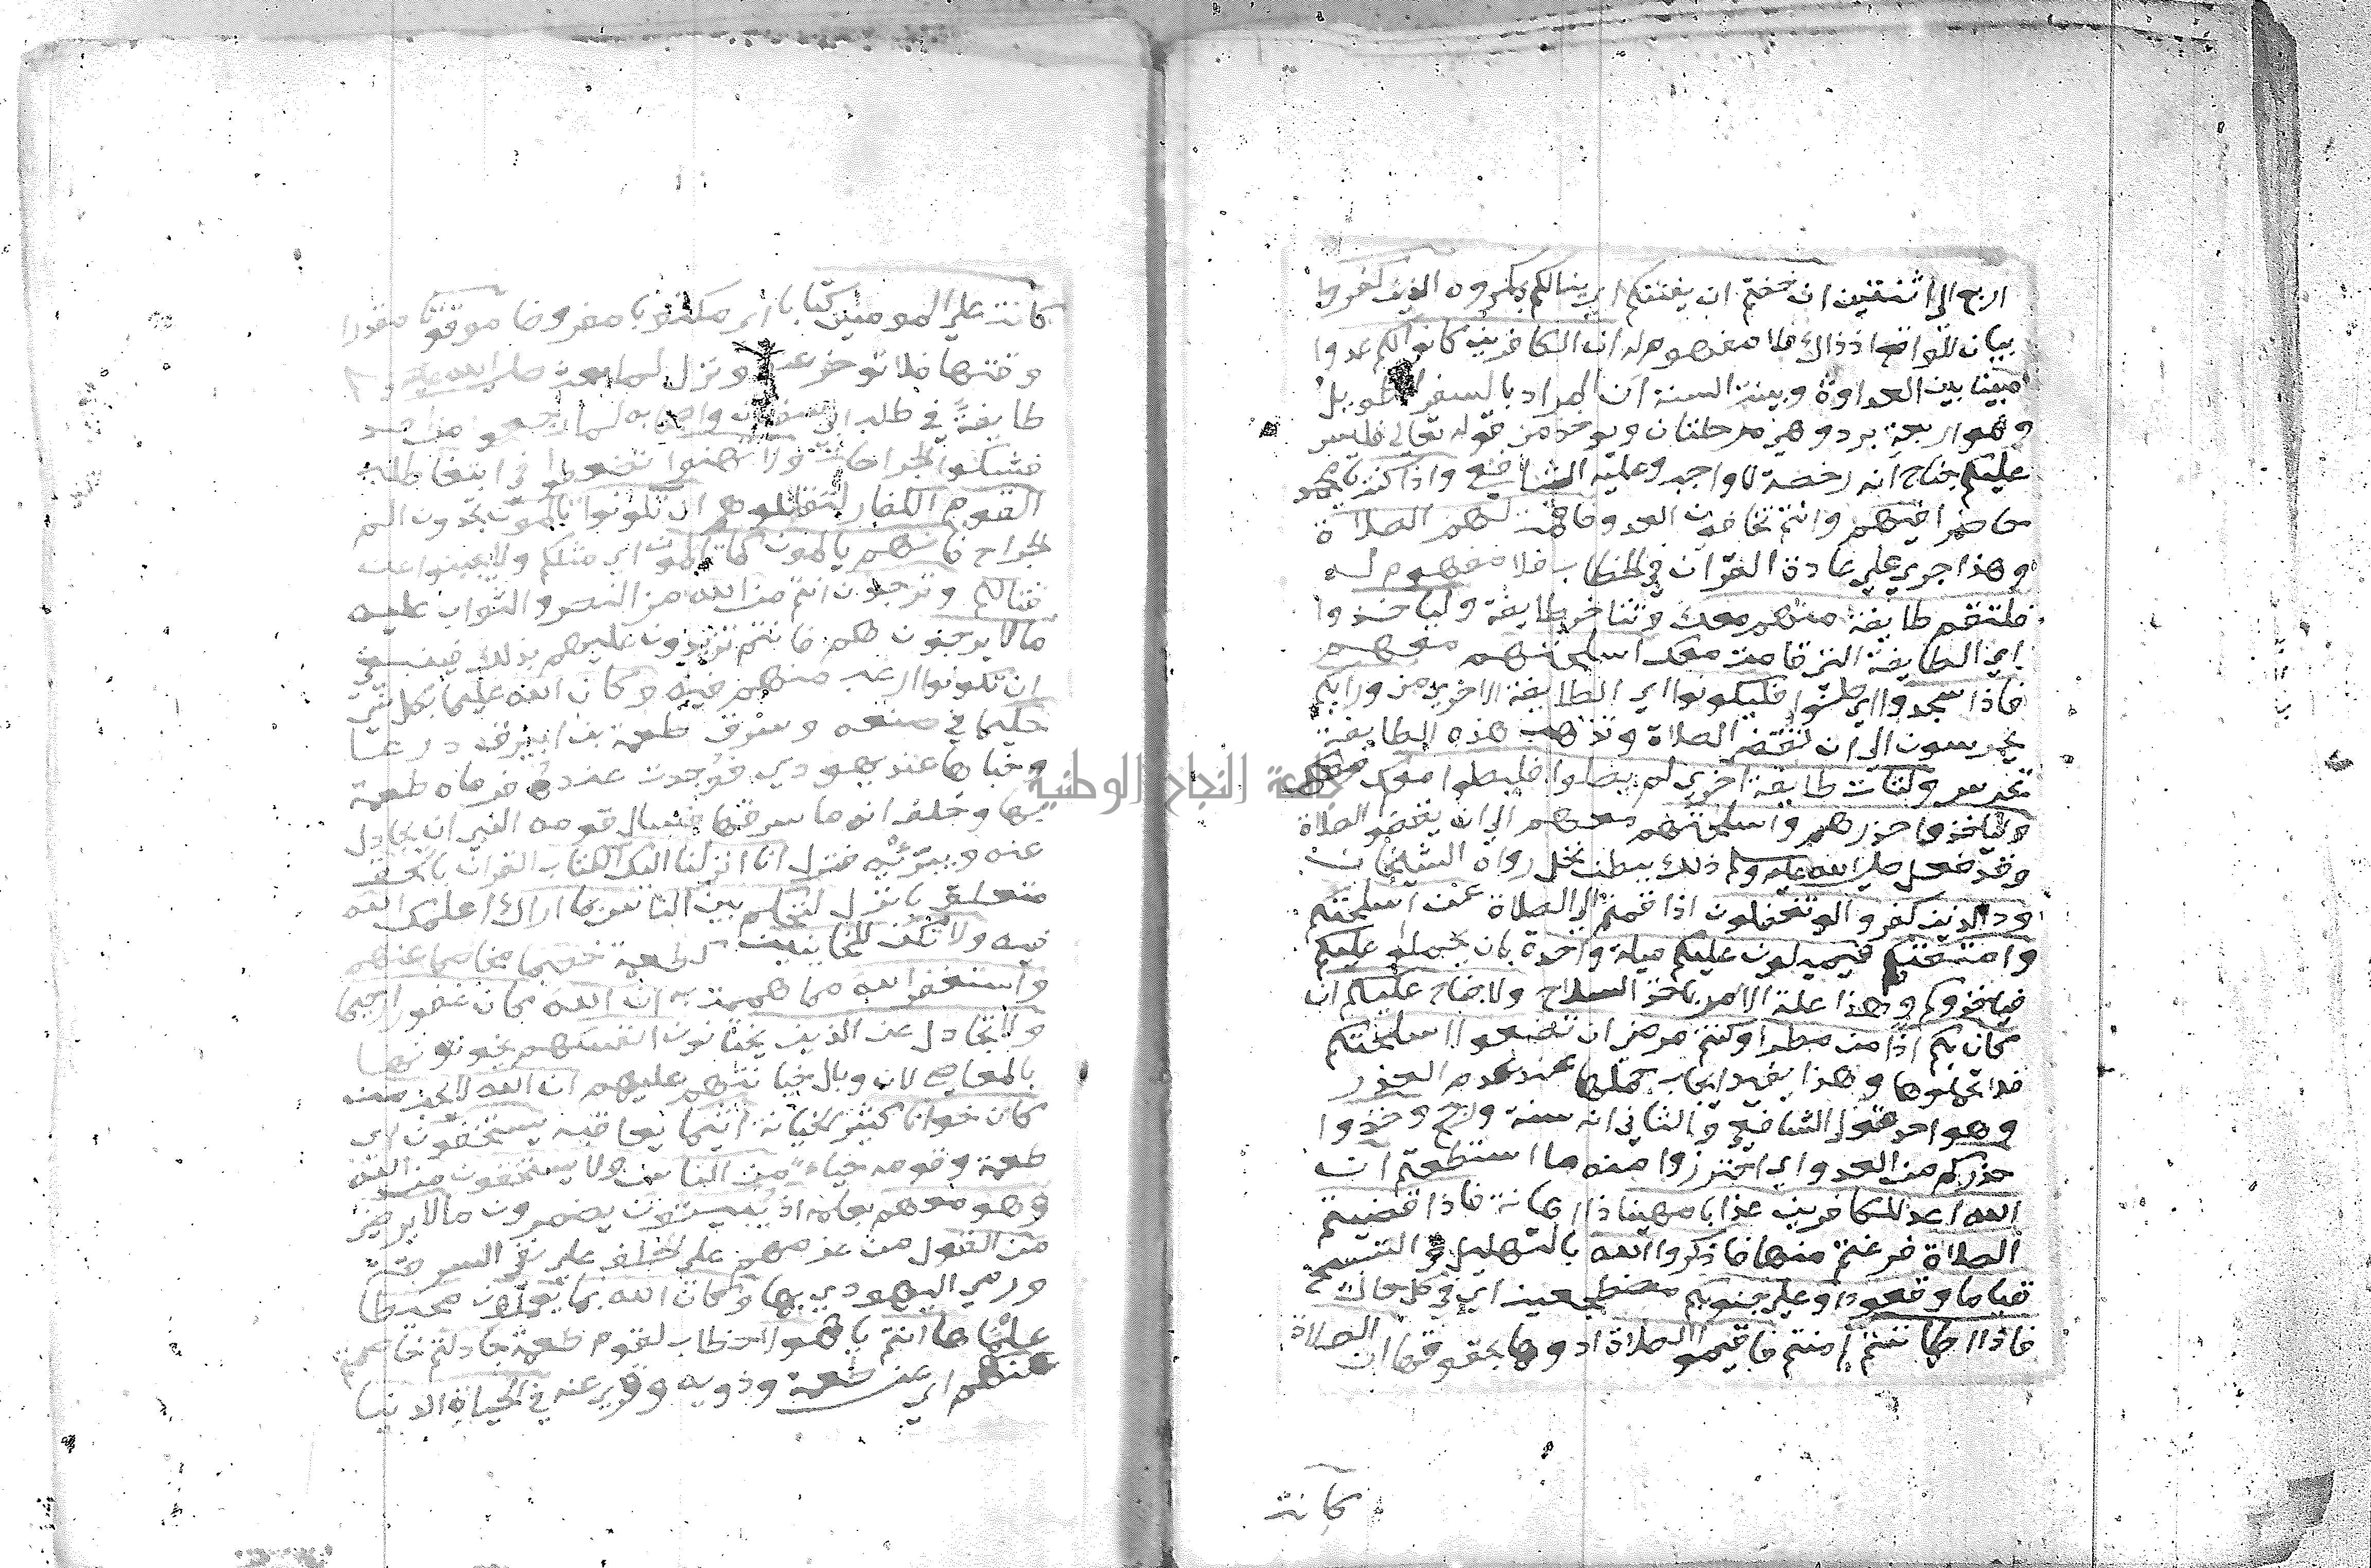 اربع الى اثنتين ان خفتم ان يفتنكم اي ينالكم بمكروه الذين كفروا
بيان للواقع اذ ذاك فلا مفهوم له ان الكافرين كانوا لكم عدوا
مبينا بين العداوة وبينت السنة ان المراد بالسفر الطويل
وهو اربعة برد وهي مرحلتان ويوخذ من قوله تعالى فليس
عليكم جناح انه رخصة لا واجب وعليه الشافعي واذا كنت يا محمد
حاضرا فيهم وانتم تخافون العدو فاقمت لهم الصلاة
وهذا جري على عادة القرآن في الخطاب فلا مفهوم له
فلتقم طايفة منهم معك وتتاخر طايفة ولياخذوا
اي الطايفة التي قامت معك اسلحتهم معهم
فاذا سجدوا اي صلوا فليكونوا اي الطايفة الاخرى من ورايكم
يحرسون الى ان تقضى الصلاة وتذهب هذه الطايفة
تحرس ولتات طايفة اخرى لم يصلوا فليصلوا معك
ولياخذوا حذرهم واسلحتهم معهم الى ان يقضوا الصلاة
وقد فعل صلى الله عليه وسلم ذلك ببطن نخل رواه الشيخان
ود الذين كفروا لو تغفلون اذا قمتم الى الصلاة عن اسلحتكم
وامتعتكم فيميلون عليكم ميلة واحدة بان يحملوا عليكم
فياخذوكم وهذا علة الامر باخذ السلاح ولا جناح عليكم ان
كان بكم اذا من مطر او كنتم مرضى ان تضعوا اسلحتكم
فلا تحملوها وهذا يفيد ايجاب حملها عند عدم العذر
وهو احد قولي الشافعي والثاني انه سنة ورجح وخذوا
حذركم من العدو اي احترزوا منه ما استطعتم ان
الله اعد للكافرين عذابا مهينا ذا اهانة فاذا قضيتم
الصلاة فرغتم منها فاذكروا الله بالتهليل والتسبيح
قياما وقعودا وعلى جنوبكم مضطجعين اي في كل حال
فاذا اطماننتم امنتم فاقيموا الصلاة ادوها بحقوقها ان الصلاة
كانت
كانت على المومنين كتابا اي مكتوبا مفروضا موقوتا مقدرا
وقتها فلا توخر عنه ونزل لما بعث صلى الله عليه و
طايفة في طلب ابي سفيان واصحابه لما رجعوا من احد
فشكوا الجراحات ولا تهنوا تضعفوا في ابتغا طلب
القوم الكفار لتقاتلوهم ان تكونوا تالمون تجدون الم
الجراح فانهم يالمون كما تالمون اي مثلكم ولا يجبنوا عن
قتالكم وترجون انتم من الله من النصر والثواب عليه
مالا يرجون هم فانتم تزيدون عليهم بذلك فينبغي
ان تكونوا ارغب منهم فيه وكان الله عليما بكل شي
حكيما في صنعه وسرق طعمة بن ابيرق درعا
وخباها عند يهودي فوجدت عنده فرماه طعمة
بها وحلف انه ما سرقها فسال قومه النبي ان يجادل
عنه ويبرئه فنزل انا انزلنا اليك الكتاب القران بالحق
متعلق بانزل لتحكم بين الناس بما اراك اعلمك الله
فيه ولا تكن للخاينين كطعمة خصيما مخاصما عنهم
واستغفر الله مما هممت به ان الله كان غفورا رحيما
ولا تجادل عن الذين يختانون انفسهم يخونونها
بالمعاصي لان وبال خيانتهم عليهم ان الله لا يحب من
كان خوانا كثير الخيانة اثيما يعاقبه يستخفون اي
طعمة وقومه حياء من الناس ولا يستخفون من الله
وهو معهم بعلمه اذ يبيتون يضمرون مالا يرضى
من القول من عزمهم على الحلف على نفي السرقة
ورمي اليهودي بها وكان الله بما يعملون محيطا
علما ها انتم يا هولا خطاب لقوم طعمة جادلتم خاصمتم
عنهم اي عن طعمة وذويه وقري عنه في الحياة الدنيا
جامعة النجاح الوطنية